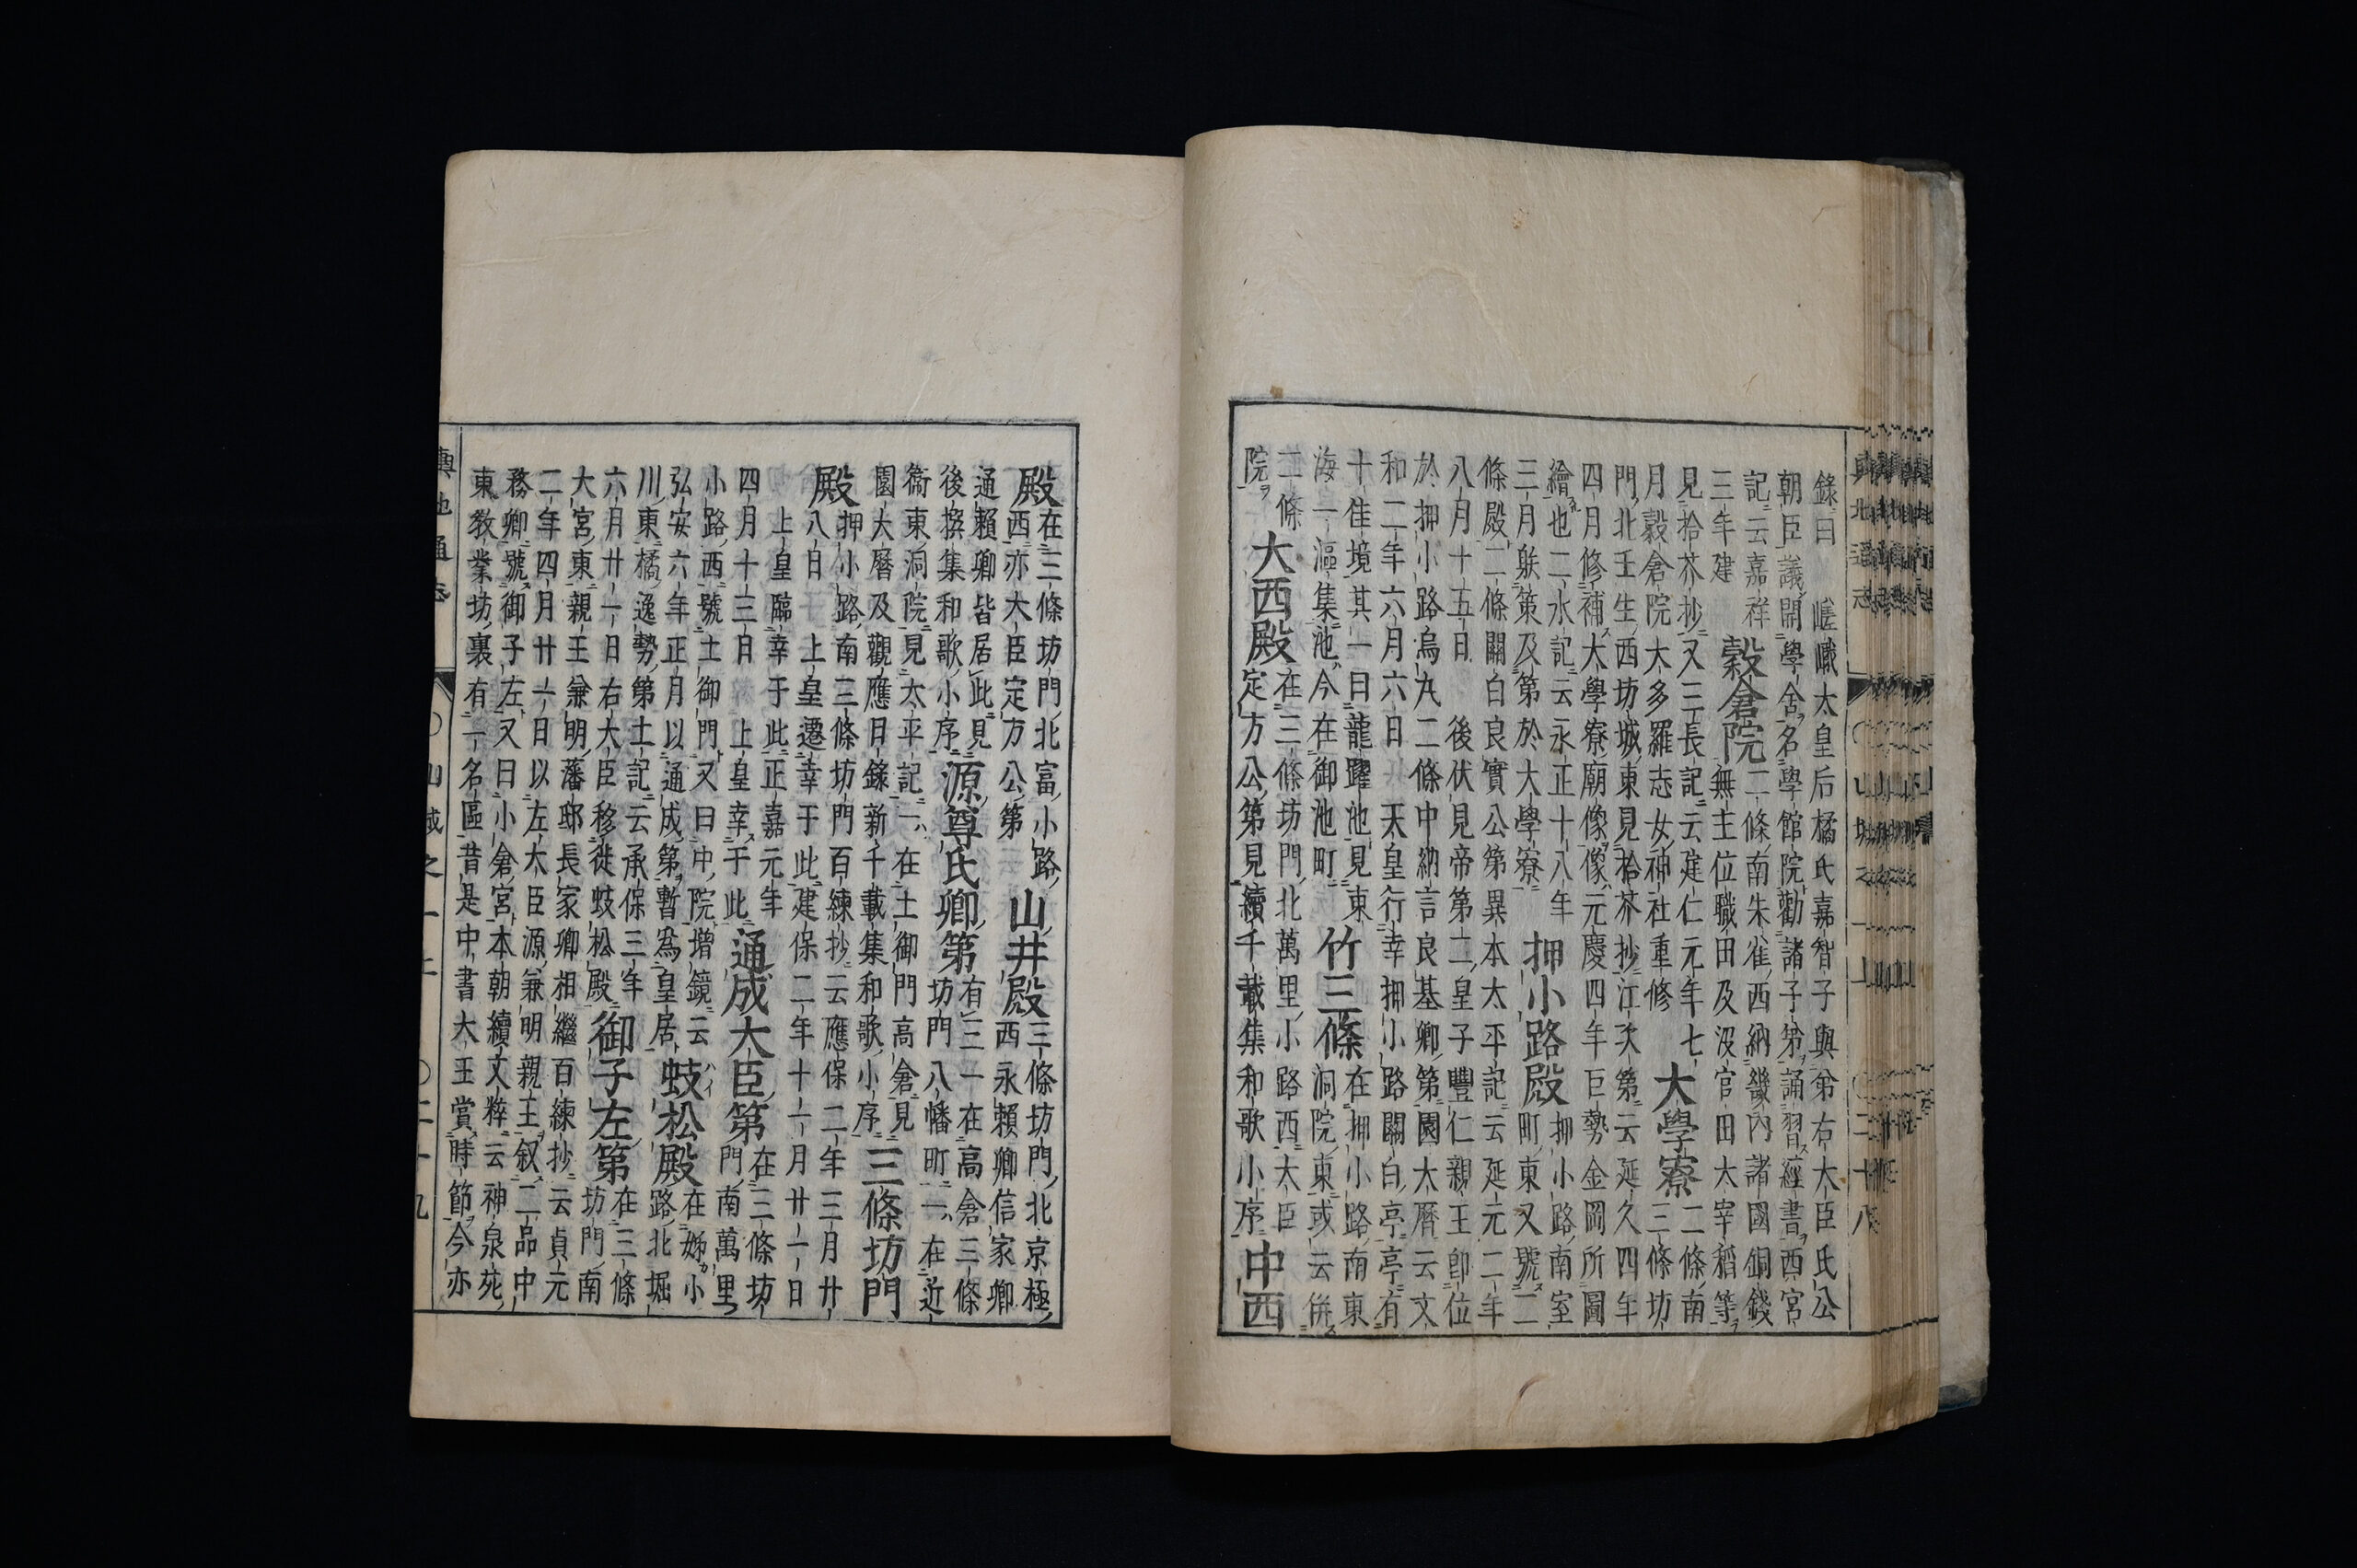 輿地通志　○山城之一上　○二十八
錄曰　嵯峨太皇后橘氏嘉智子與弟右大臣氏公
朝臣議開學舍名學館院勸諸子弟誦習經書西宮
記云嘉祥
三年建
穀倉院
二條南朱雀西納畿內諸國銅錢
無主位職田及沒官田大宰稻等
見拾芥抄又三長記云建仁元年七
月穀倉院大多羅志女神社重修
大學寮
二條南
三條坊
門北壬生西坊城東見拾芥抄江次第云延久四年
四月修補大學寮廟像像元慶四年巨勢金岡所圖
繪也二水記云永正十八年
三月躾策及第於大學寮
押小路殿
押小路南室
町東又號二
條殿二條關白良實公第異本太平記云延元二年
八月十五日　後伏見帝第二皇子豐仁親王卽位
於押小路烏丸二條中納言良基卿第園大曆云文
和二年六月六日　天皇行幸押小路關白亭亭有
十佳境其一曰龍躍池見東
海一漚集池今在御池町
竹三條
在押小路南東
洞院東或云併
二條
院
大西殿
在三條坊門北萬里小路西大臣
定方公第見續千載集和歌小序
中西
殿
在三條坊門北富小路
西亦大臣定方公第
山井殿
三條坊門北京極
西永賴卿信家卿
通賴卿皆居此見
後撰集和歌小序
源尊氏卿第
有三一在高倉三條
坊門八幡町一在近
衞東洞院見太平記一在土御門高倉見
園大曆及觀應日錄新千載集和歌小序
三條坊門
殿
押小路南三條坊門百練抄云應保二年三月廿
八日　上皇遷幸于此建保二年十一月廿一日
上皇臨幸于此正嘉元年
四月十三日　上皇幸于此
通成大臣第
在三條坊
門南萬里
小路西號土御門又曰中院增鏡云
弘安六年正月以通成第暫爲皇居
蚑松殿
在姊小
路北堀
川東橘逸勢第土記云承保三年
六月廿一日右大臣移徙蚑松殿
御子左第
在三條
坊門南
大宮東親王兼明藩邸長家卿相繼百練抄云貞元
二年四月廿一日以左大臣源兼明親王叙二品中
務卿號御子左又曰小倉宮本朝續文粹云神泉苑
東敎業坊裏有一名區昔是中書大王賞時節今亦
輿地通志　○山城之一上　○二十九